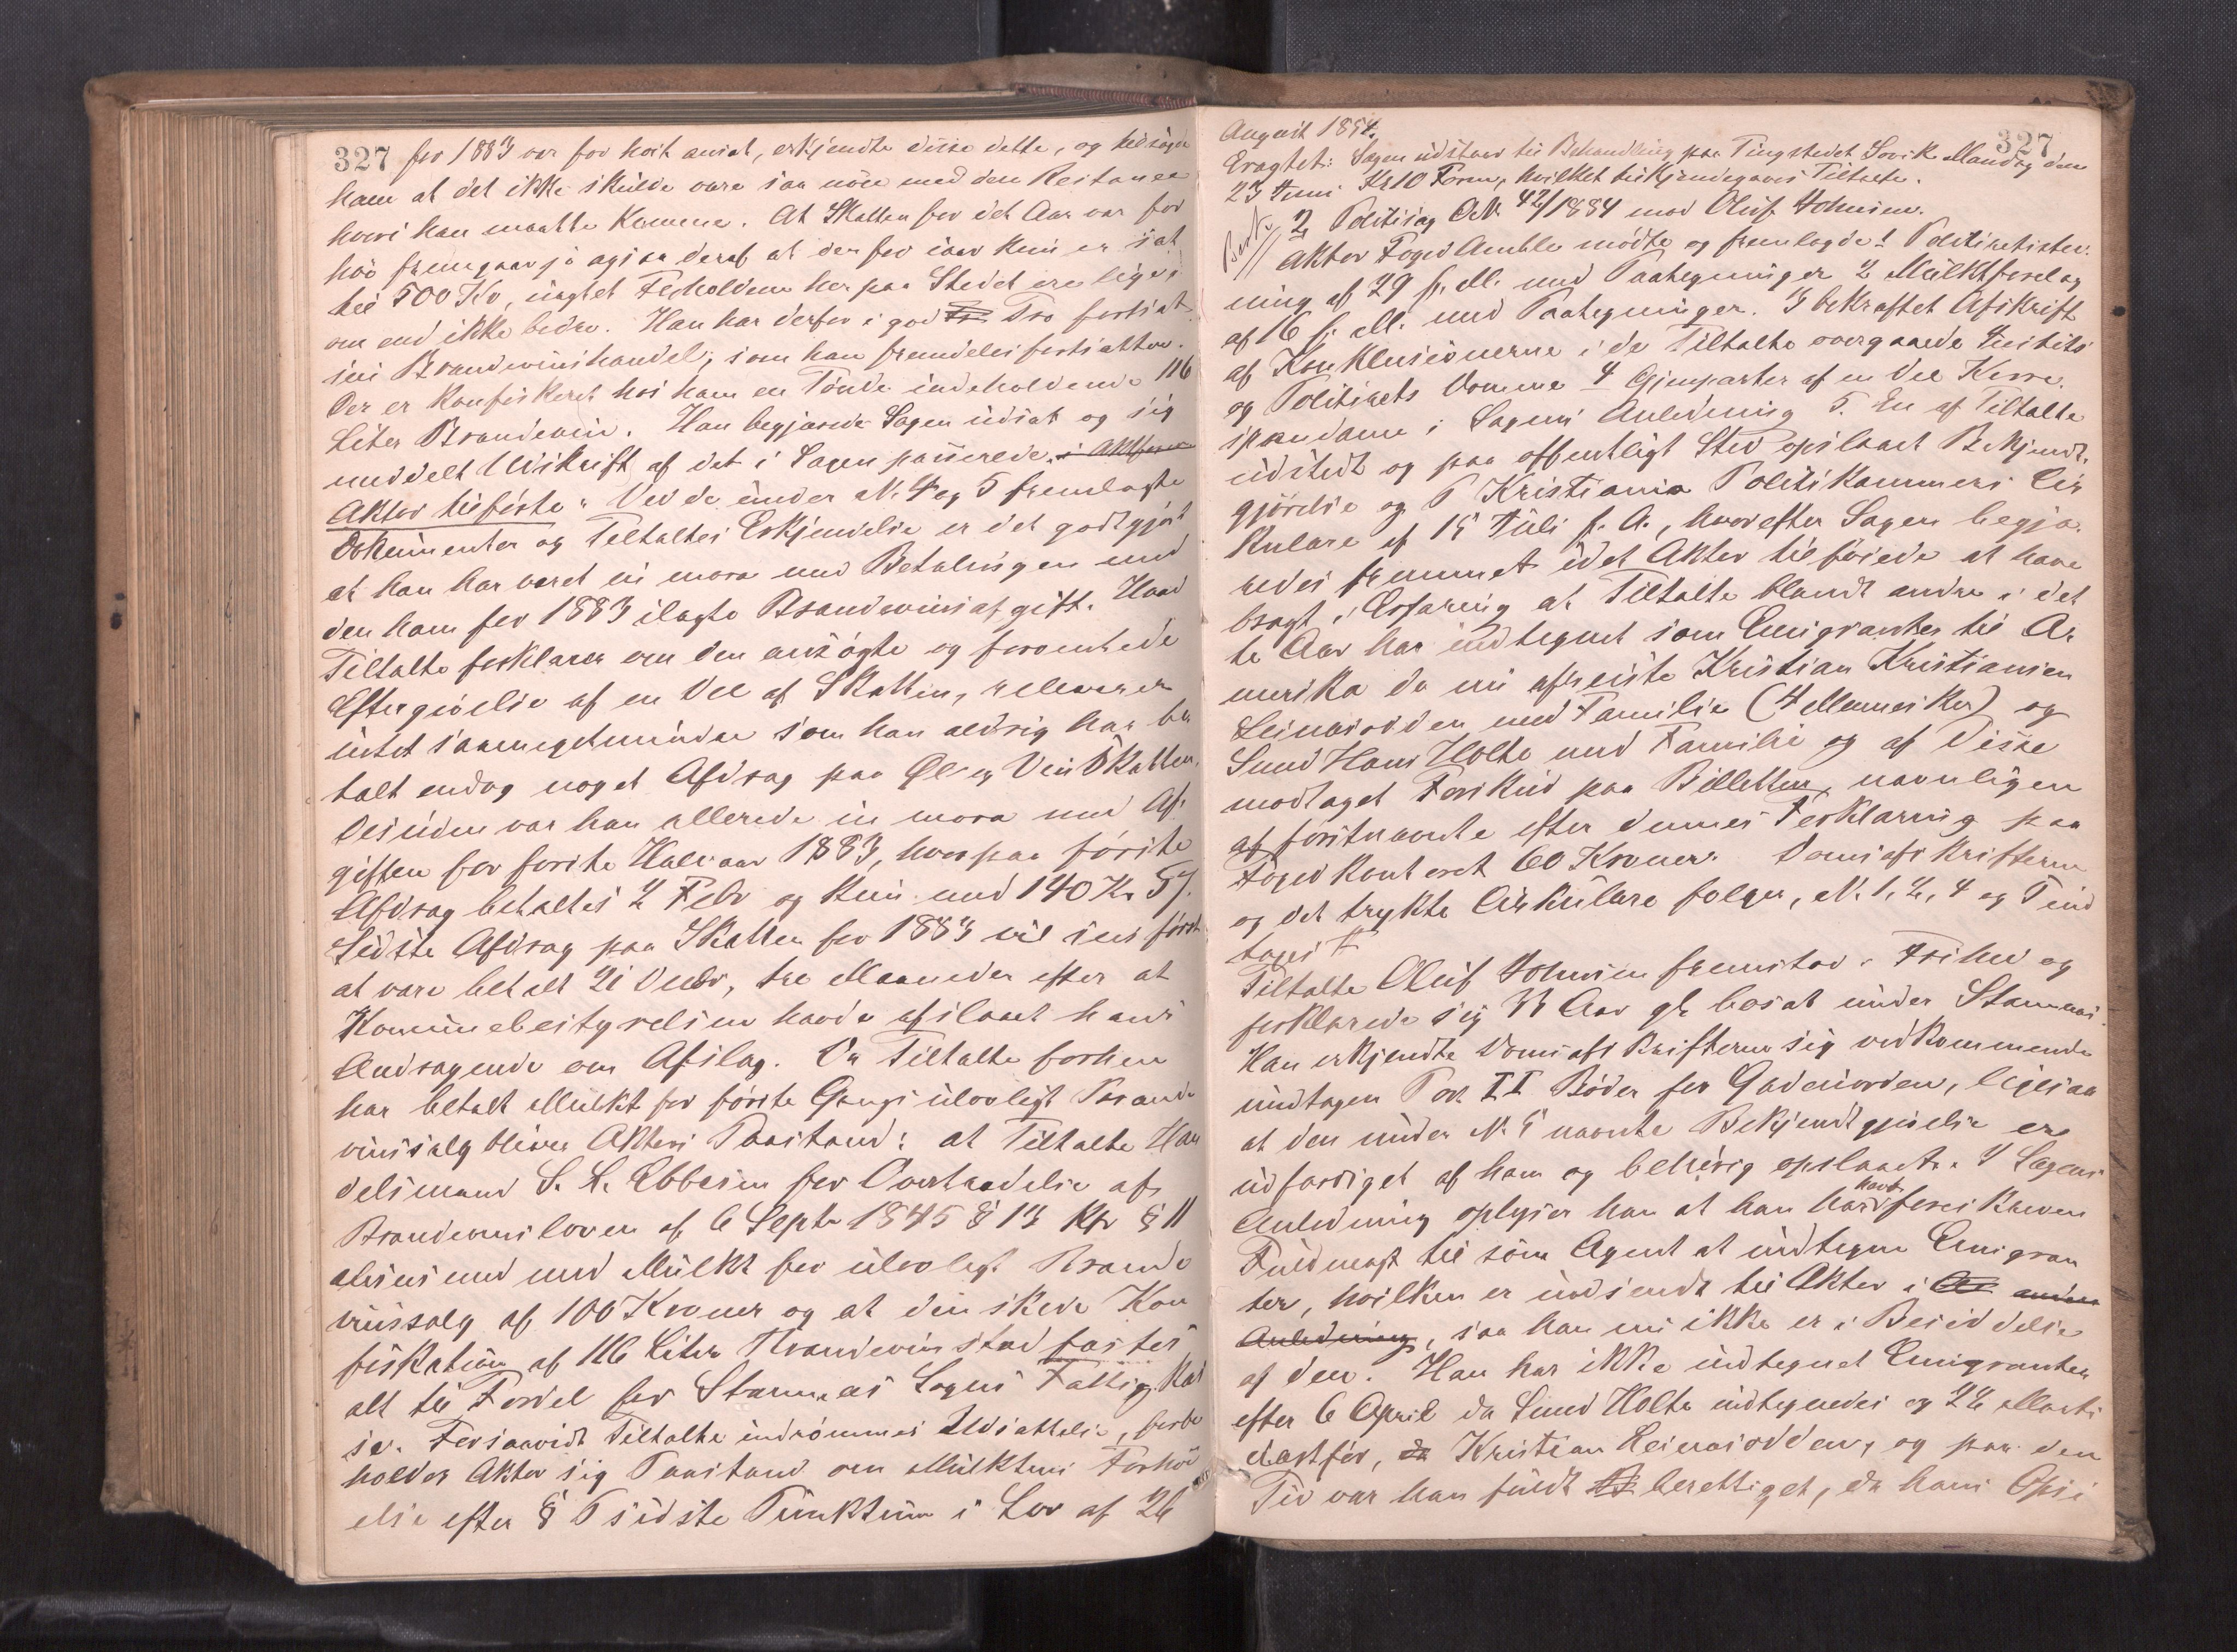 327 for 1883 var for høit ansat, erkjendte disse dette, og tilsagde
ham at det ikke skulde være saa nöie med den Restance
hvori han maatte komme. At Skatten for det Aar var for
höi fremgaar jo ogsaa deraf at den for iaar kun er sat
til 500 Kr, uagtet Forholdene her paa Stedet ere ligesaa
om end ikke bedre. Han har derfor i god Tro fortsat
sin Brændevinshandel, som han fremdeles fortsætter.
Der er konfiskeret hos ham en Tönde indeholdende 116
Liter Brændevin. Han begjærede Sagen udsat og sig
meddelt Udskrift af det i Sagen passerede.
Aktor tilförte: Ved de under No 4 og 5 fremlagte
Dokumenter og Tiltaltes Erkjendelse er det godtgjort
at han har været in mora med Betalingen med
den ham for 1883 ilagte Brændevinsafgift. Hvad
Tiltalte forklarer om den ansögte og forventede
Eftergivelse af en Del af Skatten, releverer
intet saameget mindre som han aldrig har be
talt endog noget Afdrag paa Øl og Vin Skatten.
Desuden var han allerede in mora med Af-
giften for förste Halvaar 1883, hvorpaa förste
Afdrag betaltes 2 Febr og kun med 140 Kr 57.
Sidste Afdrag paa Skatten for 1883 vil sees först
at være betalt 21 Decbr, tre Maaneder efter at
Kommunebestyrelsen havde afslaaet hans
Andragende om Afslag. Da Tiltalte forhen
har betalt Mulkt for förste Gangs ulovligt Brænde
vinssalg bliver Aktors Paastand: at Tiltalte Han
delsmand S. L. Ebbesen for Overtrædelse af
Brændevinsloven af 6 Septr 1845 § 13 Kfr § 11
ansees med Mulkt for ulovligt Brænde
vinssalg af 100 Kroner og at den skede Kon
fiskation af 116 Liter Brændevin stadfæstes
alt til Fordel for Stamnæs Sogns Fattigkas
se. Forsaavidt Tiltalte indrömmes Udsættelse, forbe
holder Aktor sig Paastand om Mulktens Forhöi
else efter § 5 sidste Punktum i Lov af 26
327
August 1854.
Eragtet: Sagen udstaar til Behandling paa Tingstedet Sovik Mandag den
23 Juni Kl 10 Form, hvilket tilkjendegaves Tiltalte.
2 Politisag No 42/1884 mod Oluf Johnsen.
Aktor Foged Amble mödte og fremlagde 1 Politiretsstev-
ning af 29 f. M. med Paategninger 2 Mulktforelæg
af 16 f. M. med Paategninger. 3 bekræftet Afskrift
af Konklusionerne i de Tiltalte overgaaede Justits
og Politirets Domme 4 Gjenparter af en Del Korre-
spondance i Sagens Anledning 5. En af Tiltalte
udstedt og paa offentligt Sted opslaaet Bekjendt-
gjörelse og 6 Kristiania Politikammers Cir
kulære af 15 Juli f. A., hvorefter Sagen begjæ-
redes fremmet idet Aktor tilföiede at have
bragt i Erfaring at Tiltalte blandt andre i det
te Aar har indtegnet som Emigranter til A-
merika de nu afreiste Kristian Kristiansen
Leinesodden med Familie (4 Mennesker) og
Smed Hans Holte med Familie og af Disse
modtaget Forskud paa Billetten, navnligen
af förstnævnte efter dennes Forklaring paa
Fogedkontoret 60 Kroner. Domsafskrifterne
og det trykte Cirkulære fölger, No 1, 2, 4 og 5 ind
tages #
Tiltalte Oluf Johnsen fremstod. Frihed og
forklarede sig Aar gl. bosat under Stamnæs.
Han erkjendte Domsafskrifterne sig vedkommende
undtagen Post II Böder for Gadeuorden, ligesaa
at den under No 5 nævnte Bekjendtgjörelse er
udfærdiget af ham og behörig opslaaet. I Sagens
Anledning oplyser han at han havt forskreven
Fuldmagt til som Agent at indtegne Emigran
ter, hvilken er indsendt til Aktor i anden
Anledning, saa han nu ikke er i Besiddelse
af den. Han har ikke indtegnet Emigranter
efter 6 April da Smed Holte indtegnedes og 22 Marts
næstför, da Kristian Leinesodden, og paa den
Tid var han fuldt berettiget, da hans Opsi